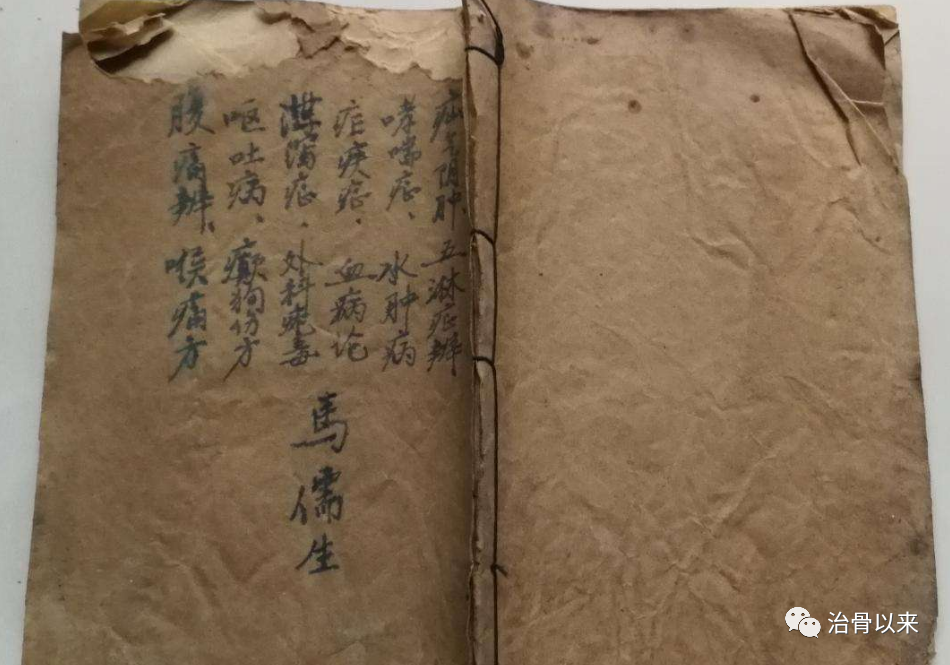 疝气阴肿、五淋症辨
哮喘症、水肿病
疾症、血病论
泻症、外科疮毒
呕吐病、癫狗伤方
腹痛辨、喉痛方
馬儒生
治骨以来